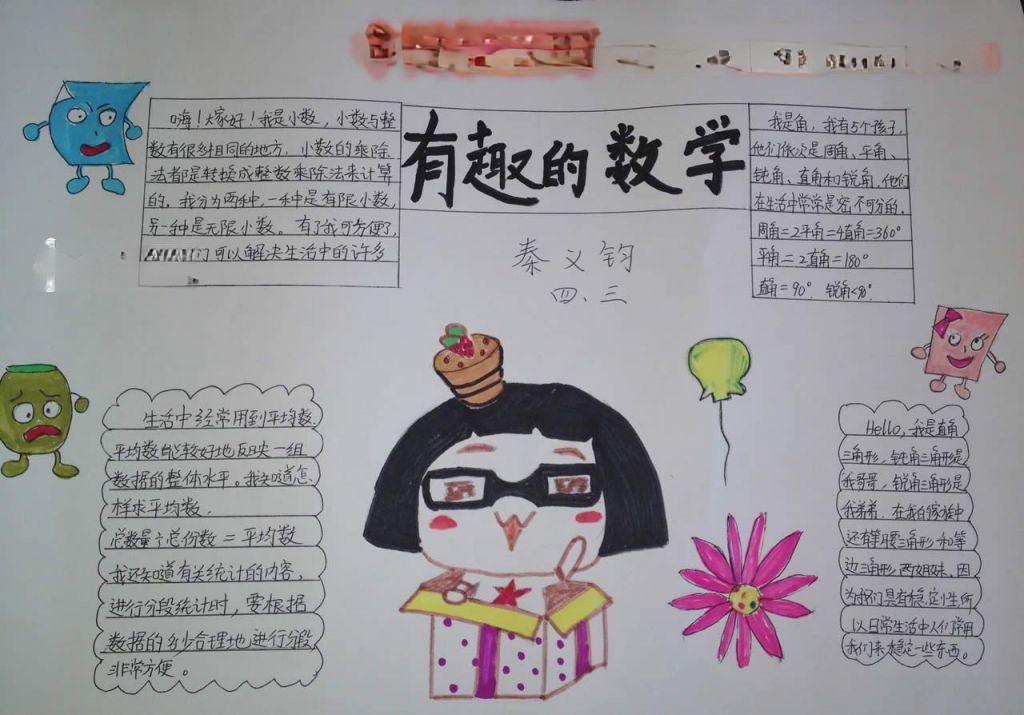 有趣的数学
秦义钧
四、三
嗨！大家好！我是小数，小数与整
数有很多相同的地方，小数的乘除
法都是转换成整数乘除法来计算
的，我分为两种，一种是有限小数，
另一种是无限小数。有了我可方便了，
们可以解决生活中的许多
我是角，我有5个孩子，
他们依次是周角、平角、
钝角、直角和锐角，他们
在生活中常常是密不可分的，
周角＝2平角＝4直角＝360°
平角＝2直角＝180°
直角＝90° 锐角<90°
生活中经常用到平均数，
平均数能较好地反映一组
数据的整体水平。我知道怎
样求平均数，
总数量÷总份数＝平均数
我还知道有关统计的内容，
进行分段统计时，要根据
数据的多少合理地进行分段
非常方便。
Hello，我是直角
三角形，钝角三角形是
我哥哥，锐角三角形是
我弟弟，在我的家族中
还有等腰三角形和等
边三角形两姐妹，因
为我们具有稳定性所
以日常生活中人们常用
我们来稳定一些东西。